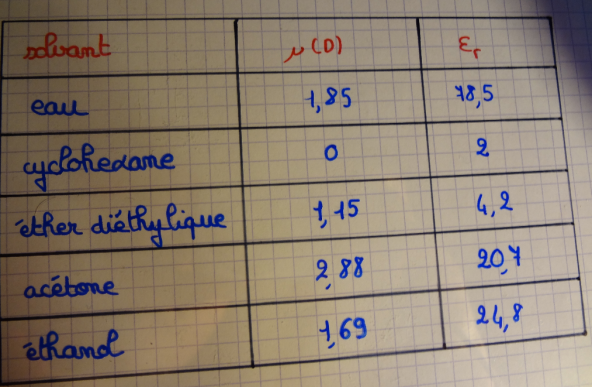 solvant μ(D) εr
eau 1,85 78,5
cyclohexane 0 2
éther diéthylique 1,15 4,2
acétone 2,88 20,7
éthanol 1,69 24,8